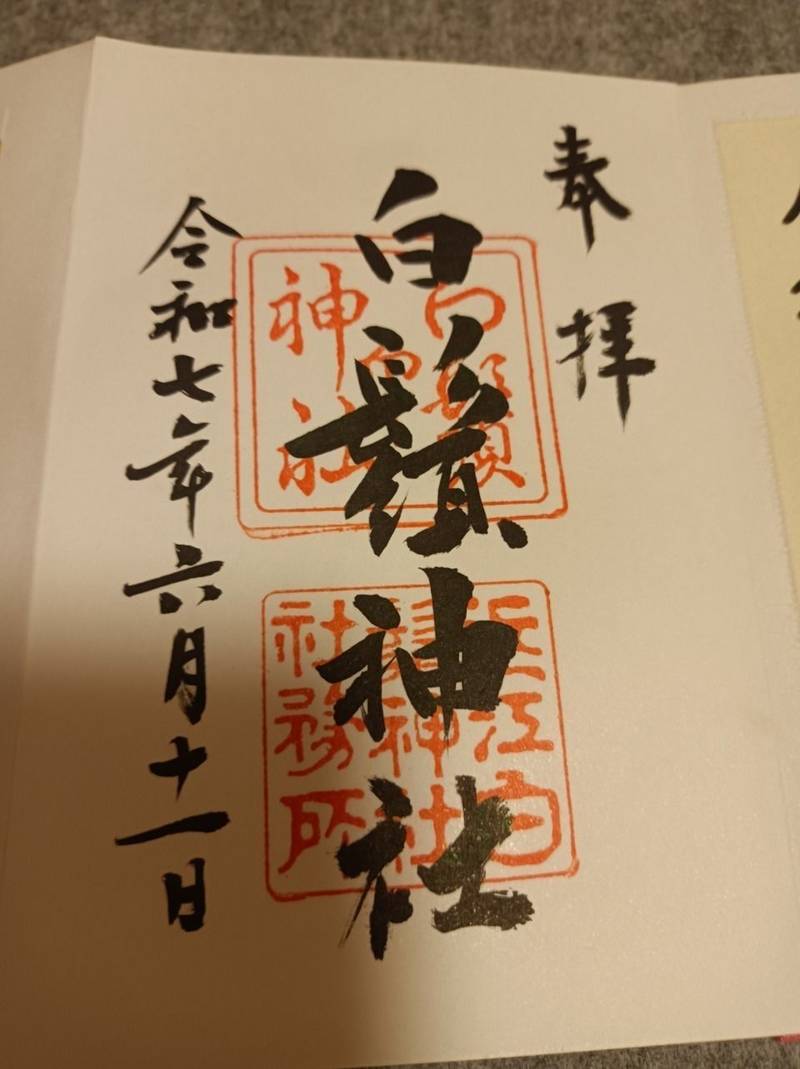 奉拝
白鬚神社
白鬚
神社
近江白
鬚神社
社務所
令和七年六月十一日